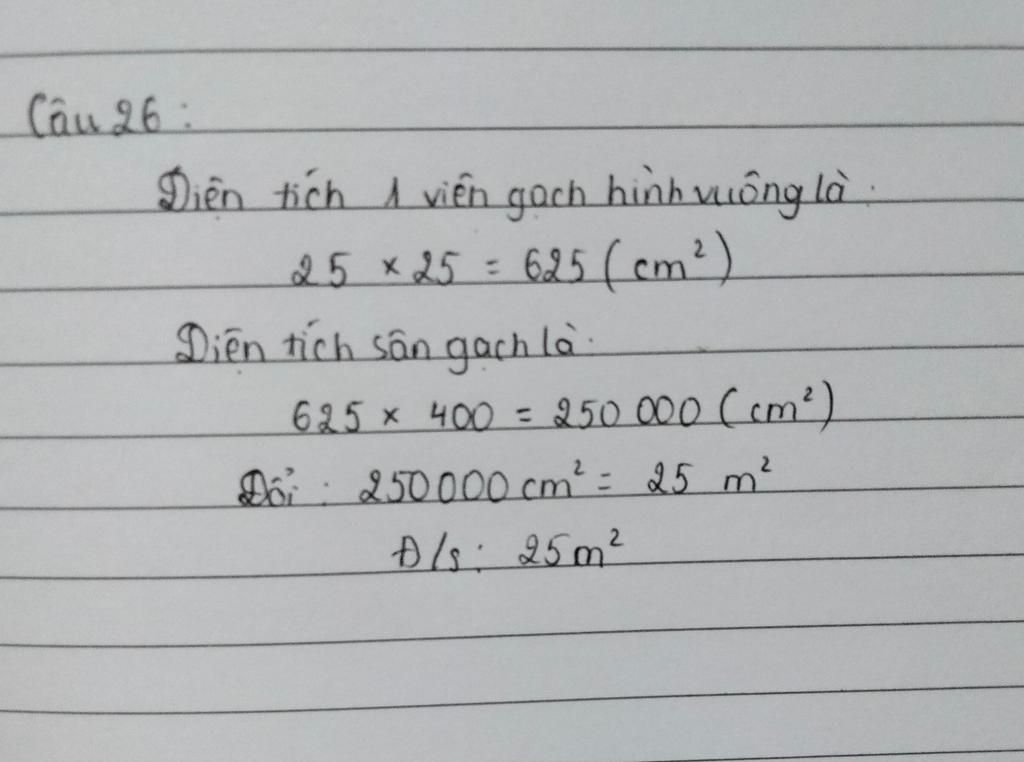 Câu 26 :
Diện tích 1 viên gạch hình vuông là :
25 × 25 = 625 ( cm² )
Diện tích sân gạch là :
625 × 400 = 250 000 ( cm² )
Đổi : 250000 cm² = 25 m²
Đ/s : 25m²